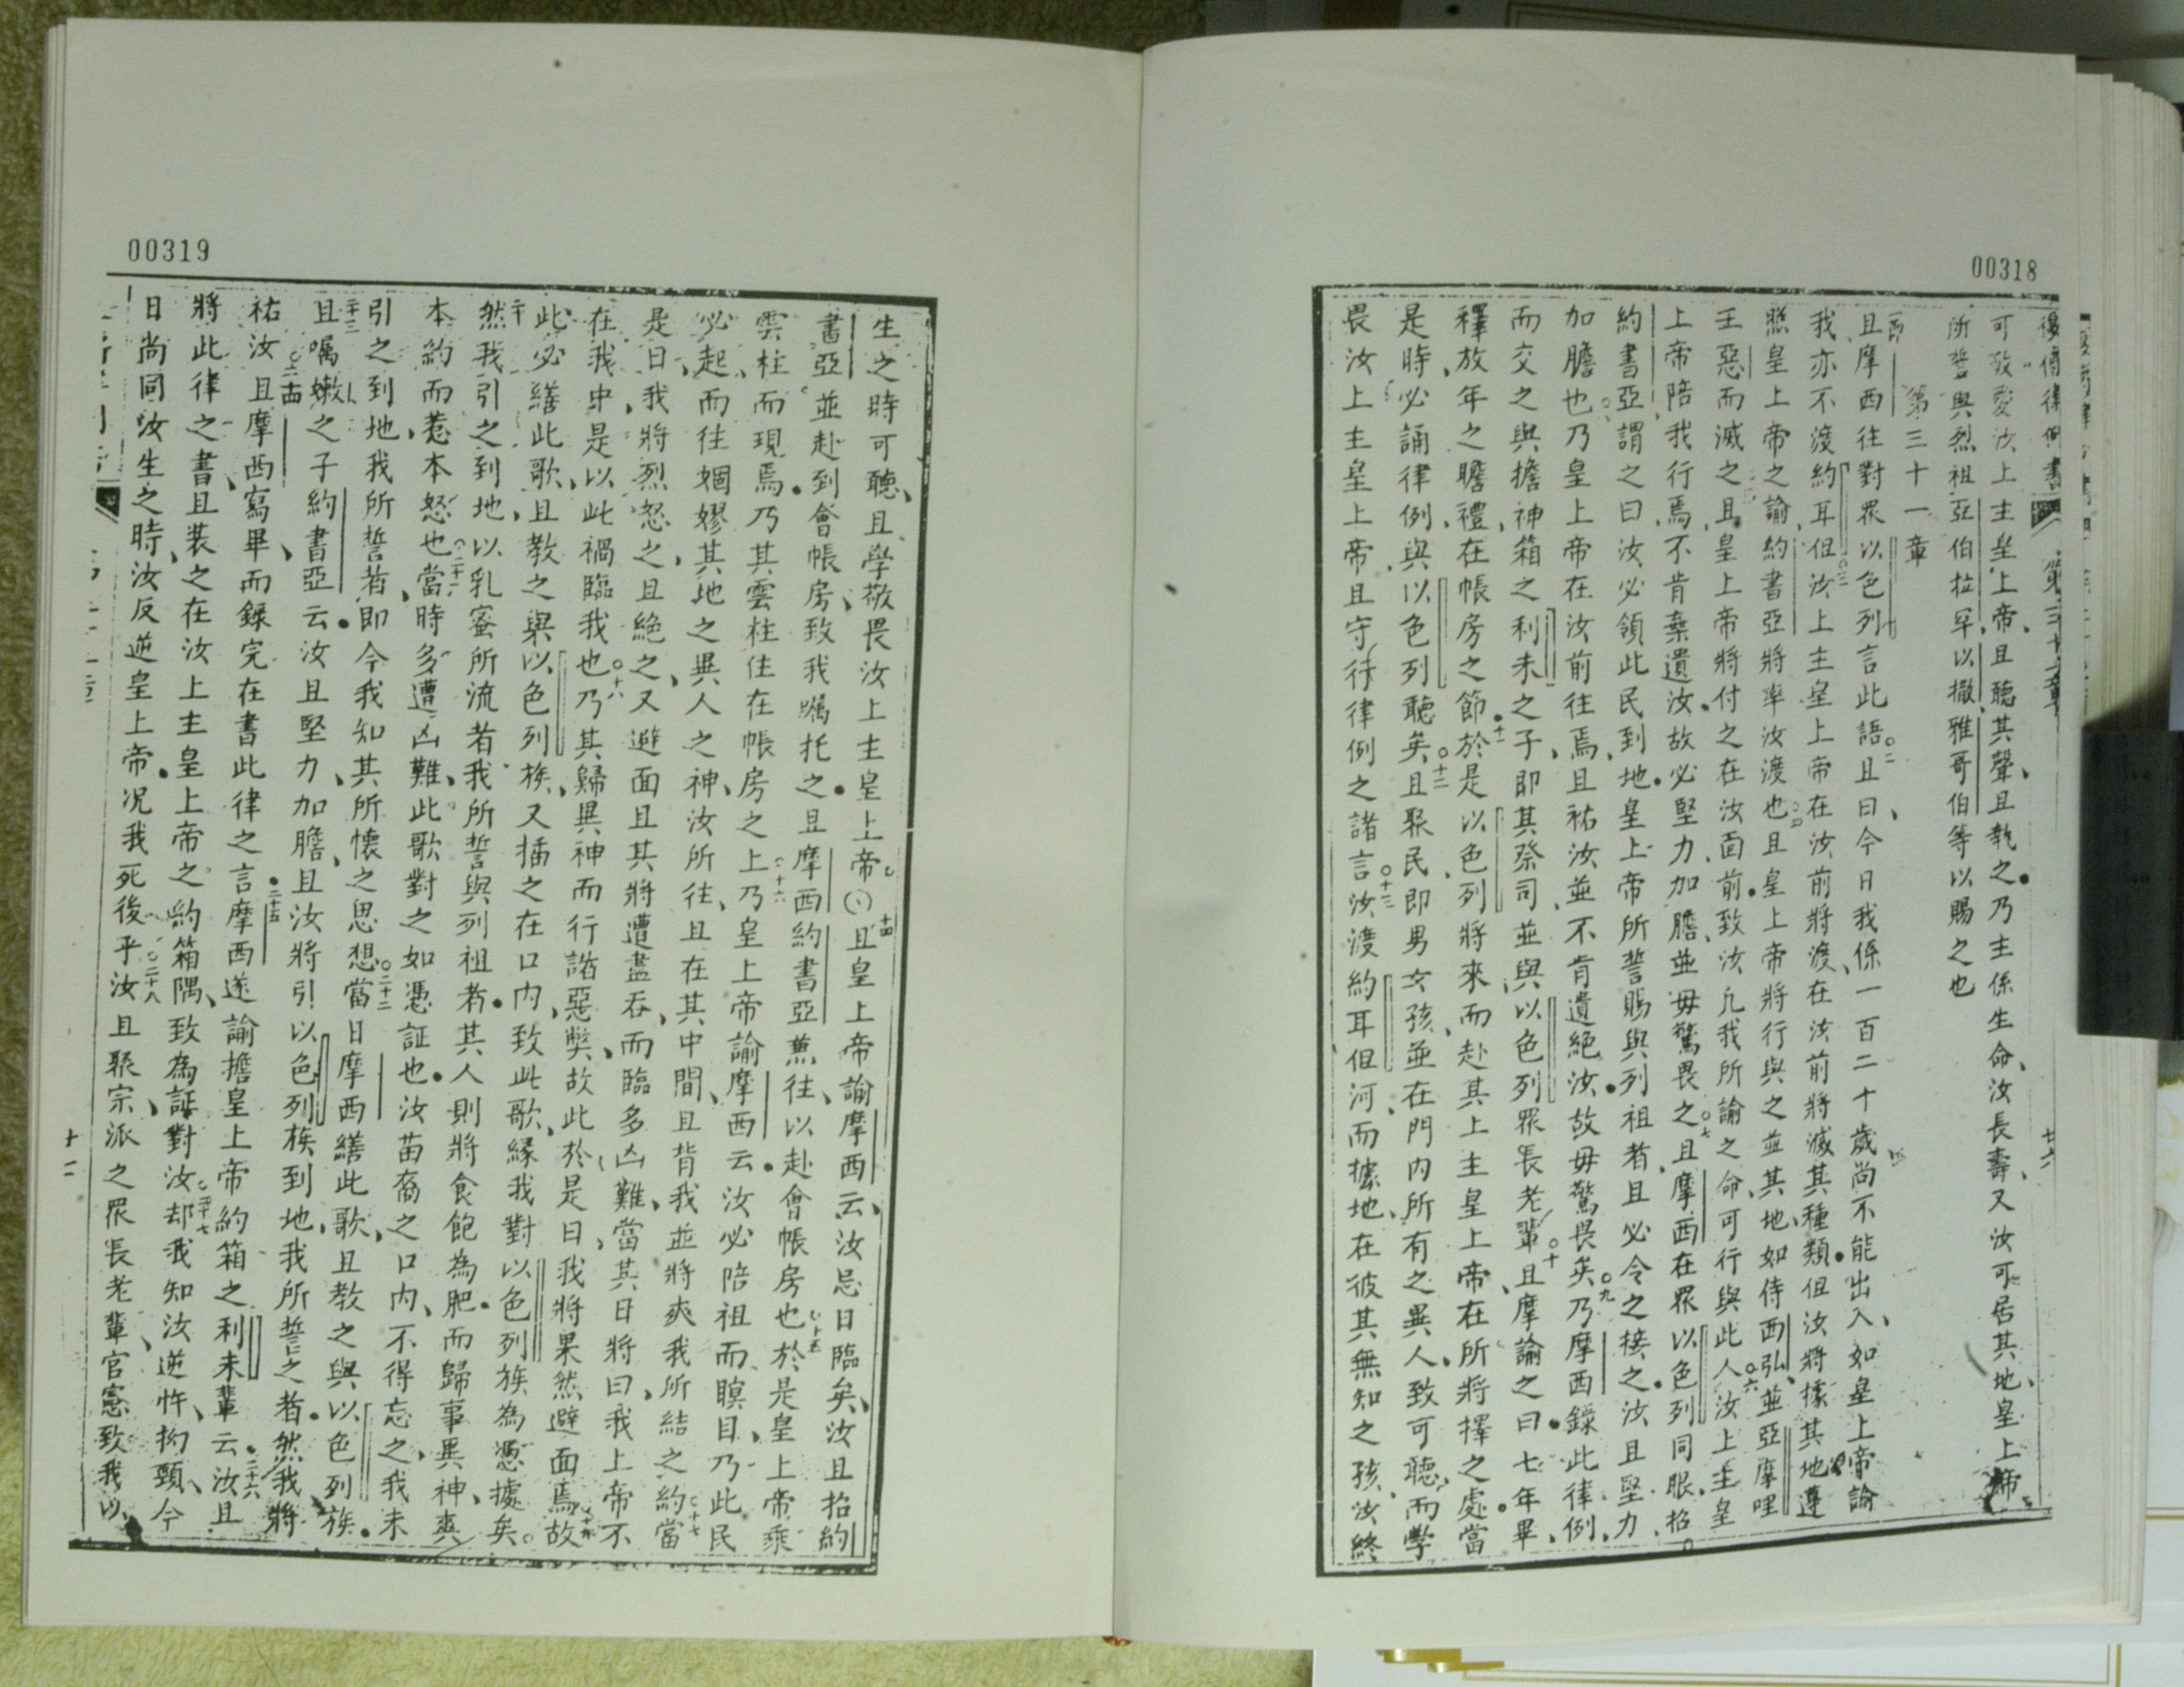 00318
復傳律例書 第三十章 廿六
可敬愛汝上主皇上帝、且聽其聲、且執之。乃主係生命、汝長壽、又汝可居其地、皇上帝
所誓與烈祖亞伯拉罕、以撒、雅哥伯等以賜之也
第三十一章
且摩西往對眾以色列言此語、○二且曰、今日我係一百二十歲尚不能出入、如皇上帝諭
我、亦不渡約耳但、○三汝上主皇上帝在汝前將渡、在汝前將滅其種類。但汝將據其地、遵
照皇上帝之諭、約書亞將率汝渡也、○四且皇上帝將行與之並其地、如待西弘並亞摩哩
王、惡而滅之、○五且皇上帝將付之在汝面前。致汝凡我所諭之命、可行與此人、○六汝上主皇
上帝陪我行焉、不肯棄遺汝。故必堅力、加膽、並毋驚畏之、○七且摩西在眾以色列同眼、招
約書亞、謂之曰、汝必領此民到地。皇上帝所誓賜與列祖者、且必令之接之。汝且堅力、○八
加膽也、乃皇上帝在汝前往焉、且祐汝、並不肯遺絕汝。故毋驚畏矣、○九乃摩西錄此律例、
而交之與擔神箱之利未之子、即其祭司、並與以色列眾長老輩、○十且摩諭之曰。七年畢、
釋放年之瞻禮、在帳房之節。○十一於是以色列將來而赴其上主皇上帝、在所將擇之處。當
是時、必誦律例、與以色列聽矣、○十二且聚民、即男女孩、並在門內所有之異人、致可聽、而學
畏汝上主皇上帝、且守行律例之諸言、○十三汝渡約耳但河、而據地、在彼其無知之孩、汝終
00319
生之時可聽、且學敬畏汝上主皇上帝。○十四且皇上帝諭摩西云、汝忌日臨矣、汝且招約
書亞、並赴到會帳房、致我囑托之。且摩西約書亞兼往、以赴會帳房也、○十五於是皇上帝乘
雲柱而現焉。乃其雲柱住在帳房之上、○十六乃皇上帝諭摩西云。汝必陪祖而瞑目、乃此民
必起、而往姻嫪、其地之異人之神、汝所往、且在其中間、且背我並將爽我所結之約、○十七當
是日、我將烈怒之、且絕之、又避面、且其將遭盡吞、而臨多凶難、當其日將曰、我上帝不
在我中、是以此禍臨我也、○十八乃其歸異神而行諸惡弊、故此於是日、我將果然避面焉、○十九故
此必繕此歌、且教之與以色列族、又插之在口內、致此歌、緣我對以色列族為憑據矣。
○二十然我引之到地、以乳蜜所流者、我所誓與列祖者。其人則將食飽為肥。而歸事異神、爽
本約而惹本怒也、○二十一當時多遭凶難、此歌對之如憑証也。汝苗裔之口內、不得忘之、我未
引之到地、我所誓者、即今我知其所懷之思想、○二十二當日摩西繕此歌、且教之與以色列族。
○二十三且囑嫩之子約書亞云。汝且堅力、加膽、且汝將引以色列族到地、我所誓之者。然我將
祐汝、○二十四且摩西寫畢、而錄完在書此律之言、○二十五摩西遂諭擔皇上帝約箱之利未輩云、○二十六汝且
將此律之書、且裝之在汝上主皇上帝之約箱隅、致為証對汝、○二十七却我知汝逆忤、拗頸、今
日尚同汝生之時、汝反逆皇上帝。況我死後乎、○二十八汝且聚宗派之眾長老輩、官憲、致我以
十二